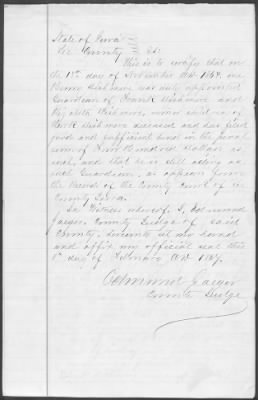 State of Iowa
Lee County } SS.
This is to certify that on
the 1st day of November A.D. 1864, one
was duly appointed
Guardian of and
minor children of
deceased and has filed
good and sufficient bond in the penal
sum of Hundred Dollars as
such, and that he is still acting as
such Guardian, as appears from
the Records of the County Court of Lee
County Iowa.
In Witness whereof, I, Edmund
Jaeger, County Judge of said
County, hereunto set my hand
and affix my official seal this
day of February A.D. 1867.
Edmund Jaeger
County Judge